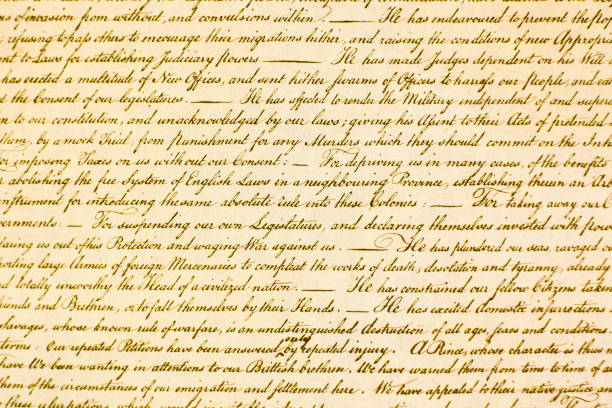 rs of invasion from without, and convulsions within. — He has endeavoured to prevent the pop
; refusing to pass others to encourage their migrations hither, and raising the conditions of new Appropr
ent to Laws for establishing Judiciary powers — He has made Judges dependent on his Will a
has erected a multitude of New Offices, and sent hither swarms of Officers to harass our people, and ea
t the Consent of our legislatures. — He has affected to render the Military independent of and super
n to our constitution, and unacknowledged by our laws; giving his Assent to their Acts of pretended
them, by a mock Trial, from punishment for any Murders which they should commit on the Inh
or imposing Taxes on us without our Consent: — For depriving us in many cases, of the benefits
r abolishing the free System of English Laws in a neighbouring Province, establishing therein an Ar
instrument for introducing the same absolute rule into these Colonies: — For taking away our C
vernments: — For suspending our own Legislatures, and declaring themselves invested with powe
laring us out of his Protection and waging War against us. — He has plundered our seas, ravaged o
porting large Armies of foreign Mercenaries to compleat the works of death, desolation and tyranny, already
nd totally unworthy the Head of a civilized nation. — He has constrained our fellow Citizens taken
friends and Brethren, or to fall themselves by their Hands. — He has excited domestic insurrections
Savages, whose known rule of warfare, is an undistinguished destruction of all ages, sexes and conditions
terms: Our repeated Petitions have been answered only by repeated injury. A Prince, whose character is thus
have We been wanting in attentions to our Brittish brethren. We have warned them from time to time of a
them of the circumstances of our emigration and settlement here. We have appealed to their native justice an
these usurpations, which would